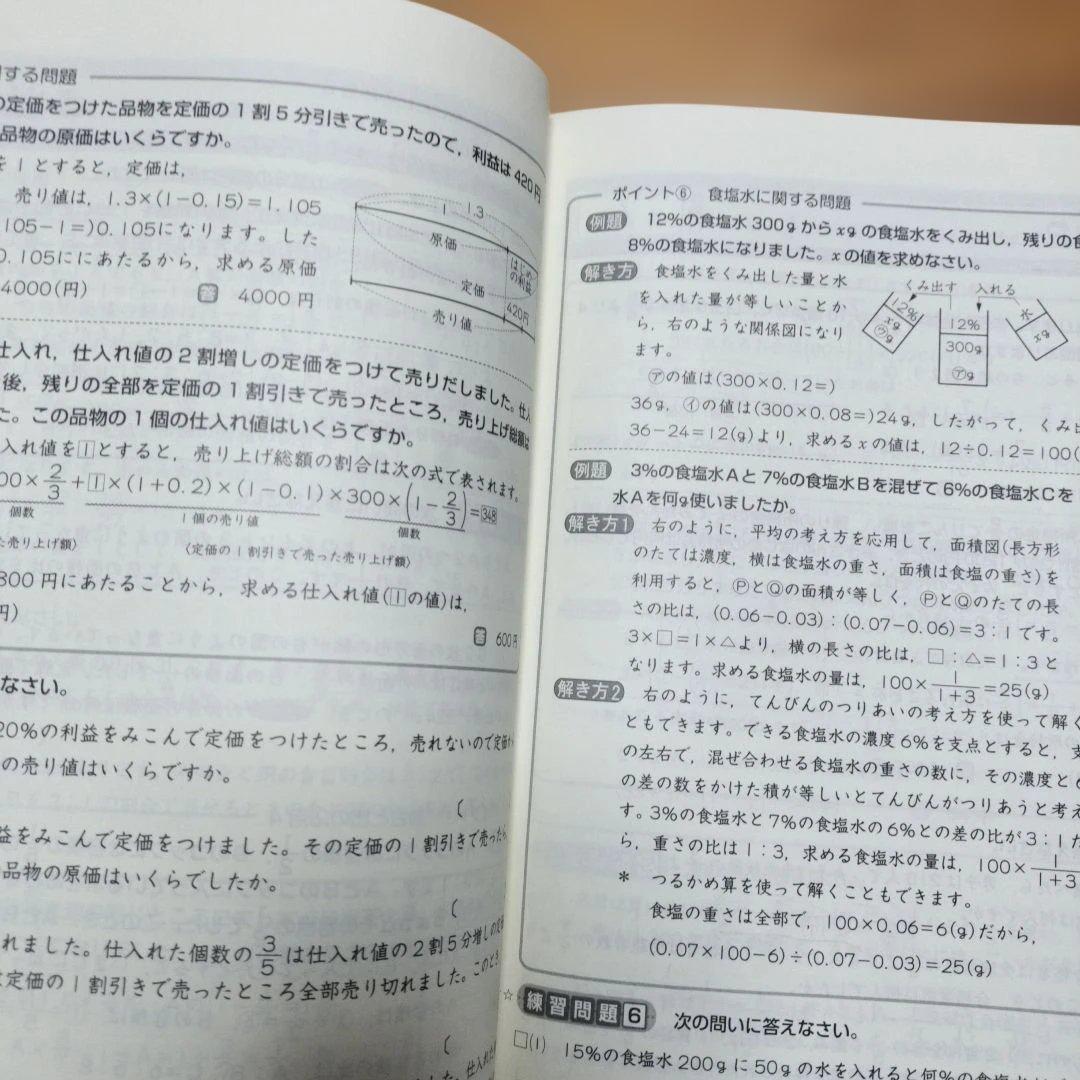 する問題
の定価をつけた品物を定価の1割5分引きで売ったので，利益は420円
品物の原価はいくらですか。
を1とすると，定価は，
売り値は，1.3×(1−0.15)=1.105
105−1=)0.105になります。した
0.105ににあたるから，求める原価
4000(円)
答 4000円
1.3
1
原価
はじめの利益
定価
420円
売り値
仕入れ，仕入れ値の2割増しの定価をつけて売りだしました。仕入
後，残りの全部を定価の1割引きで売ったところ，売り上げ総額は
た。この品物の1個の仕入れ値はいくらですか。
入れ値を1とすると，売り上げ総額の割合は次の式で表されます。
00×2/3+1×(1+0.2)×(1−0.1)×300×(1−2/3)=348
個数 1個の売り値 個数
た売り上げ額〉 〈定価の1割引きで売った売り上げ額〉
800円にあたることから，求める仕入れ値(1の値)は，
円)
答 600円
なさい。
20%の利益をみこんで定価をつけたところ，売れないので定価
の売り値はいくらですか。
(
益をみこんで定価をつけました。その定価の1割引きで売ったら，
品物の原価はいくらでしたか。
(
れました。仕入れた個数の3/5は仕入れ値の2割5分増しの定
定価の1割引きで売ったところ全部売り切れました。このとき
(
ポイント⑥ 食塩水に関する問題
例題 12%の食塩水300gからxgの食塩水をくみ出し，残りの食
8%の食塩水になりました。xの値を求めなさい。
解き方 食塩水をくみ出した量と水
を入れた量が等しいことか
ら，右のような関係図になり
ます。
くみ出す 入れる
12%
xg
㋒g
12%
300g
㋐g
水
xg
㋐の値は(300×0.12=)
36g，㋑の値は(300×0.08=)24g，したがって，くみ出
36−24=12(g)より，求めるxの値は，12÷0.12=100(
例題 3%の食塩水Aと7%の食塩水Bを混ぜて6%の食塩水Cを
水Aを何g使いましたか。
解き方1 右のように，平均の考え方を応用して，面積図(長方形
のたては濃度，横は食塩水の重さ，面積は食塩の重さ)を
利用すると，ⓅとⓆの面積が等しく，ⓅとⓆのたての長
さの比は，(0.06−0.03)：(0.07−0.06)=3：1です。
3×□=1×△より，横の長さの比は，□：△=1：3と
なります。求める食塩水の量は，100×1/(1+3)=25(g)
解き方2 右のように，てんびんのつりあいの考え方を使って解く
ともできます。できる食塩水の濃度6%を支点とすると，支
の左右で，混ぜ合わせる食塩水の重さの数に，その濃度と6
の差の数をかけた積が等しいとてんびんがつりあうと考え
す。3%の食塩水と7%の食塩水の6%との差の比が3：1だ
ら，重さの比は1：3，求める食塩水の量は，100×1/(1+3)
* つるかめ算を使って解くこともできます。
食塩の重さは全部で，100×0.06=6(g)だから，
(0.07×100−6)÷(0.07−0.03)=25(g)
☆
練習問題6 次の問いに答えなさい。
□(1) 15%の食塩水200gに50gの水を入れると何%の食塩水